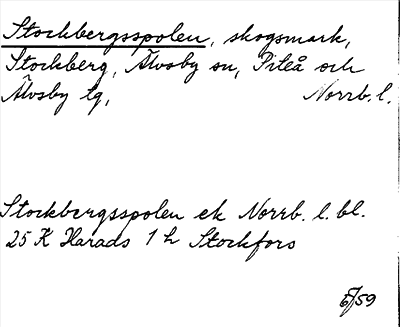 Stockbergsspolen, skogsmark,
Stockberg, Älvsby sn, Piteå och
Älvsby tg, Norrb. l.
Stockbergsspolen ek Norrb. l. bl.
25 K Harads 1 h Stockfors
6/59